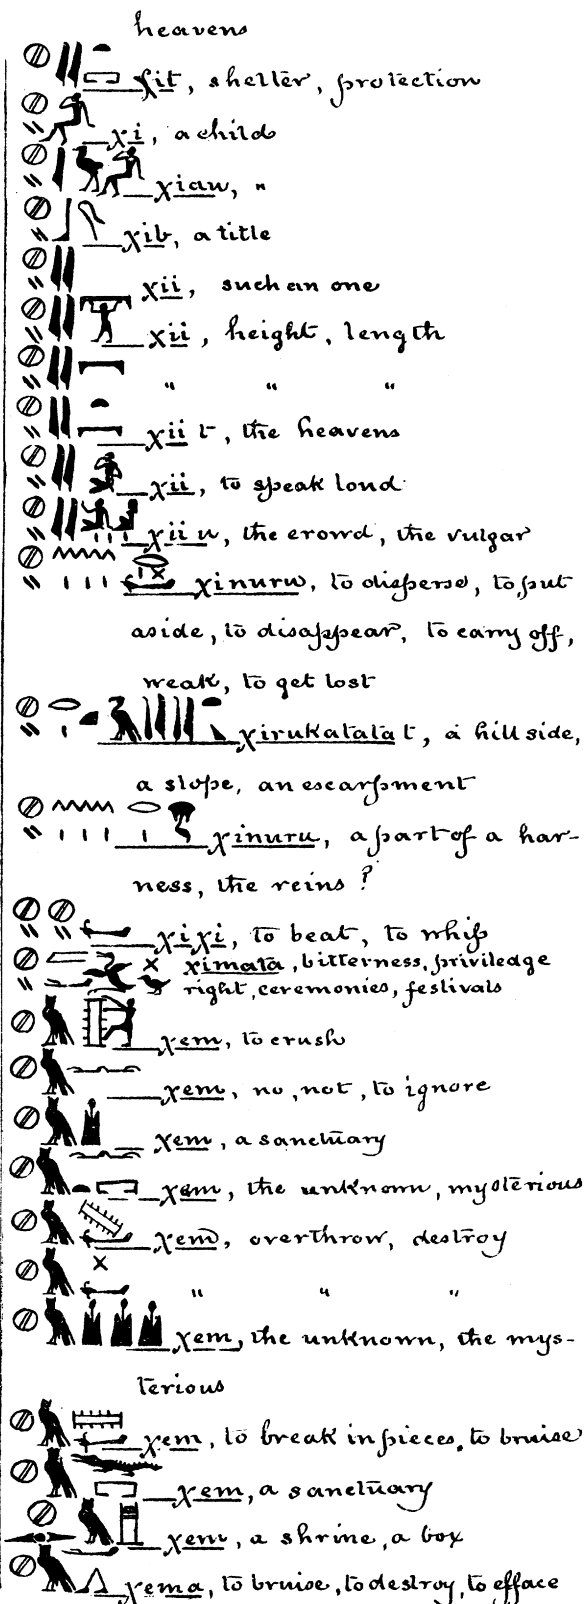 heavens
χit, shelter, protection
χi, a child
χiau, "
χib, a title
χii, such an one
χii, height, length
" " "
χiit, the heavens
χii, to speak loud
χiiu, the crowd, the vulgar
χinuru, to disperse, to put
aside, to disappear, to carry off,
weak, to get lost
χirukatatat, a hill side,
a slope, an escarpment
χinuru, a part of a har-
ness, the reins?
χiχi, to beat, to whip
χimata, bitterness, priviledge
right, ceremonies, festivals
χem, to crush
χem, no, not, to ignore
χem, a sanctuary
χem, the unknown, mysterious
χem, overthrow, destroy
" " "
χem, the unknown, the mys-
terious
χem, to break in pieces, to bruise
χem, a sanctuary
χem, a shrine, a box
χema, to bruise, to destroy, to efface